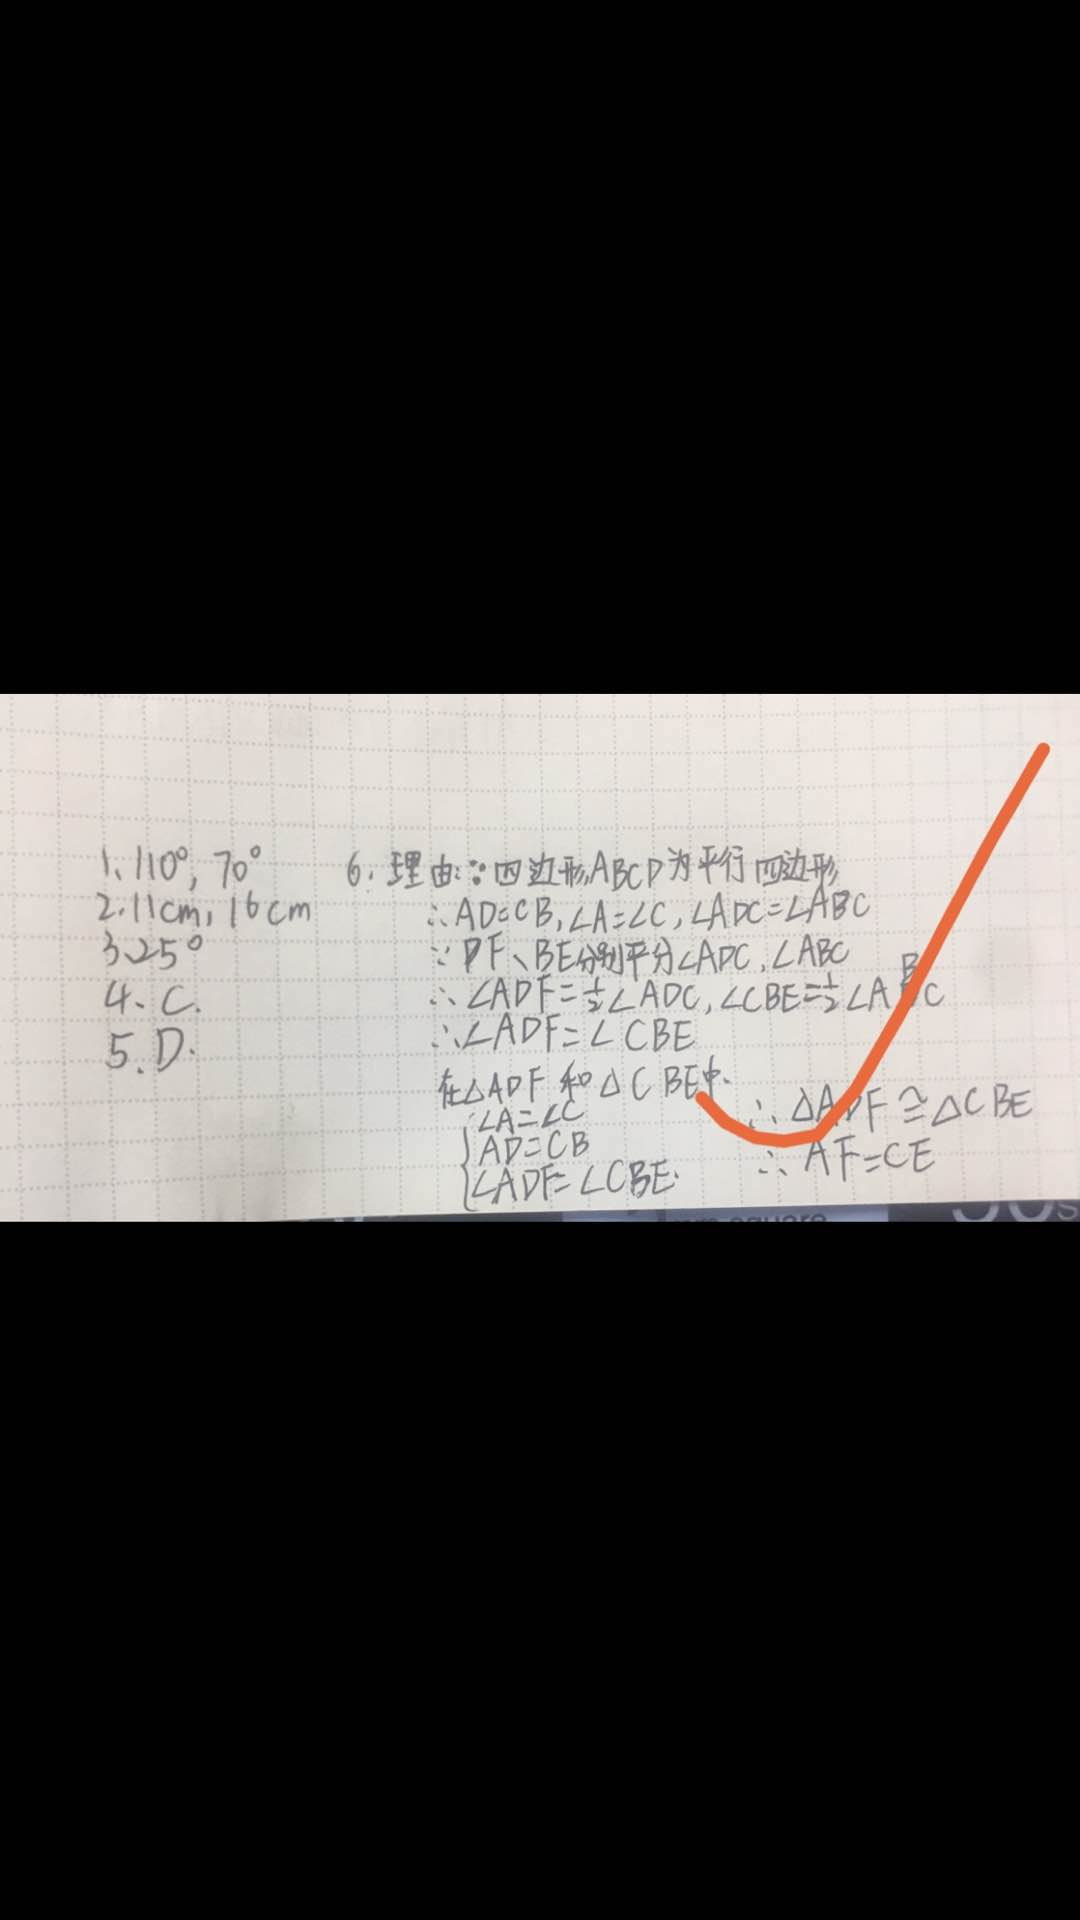 1、110°, 70°
2. 11cm, 16cm
3、25°
4、C.
5. D.
6. 理由:∵四边形ABCD为平行四边形
∴AD=CB,∠A=∠C,∠ADC=∠ABC
∵DF、BE分别平分∠ADC,∠ABC
∴∠ADF=½∠ADC,∠CBE=½∠ABC
∴∠ADF=∠CBE
在△ADF和△CBE中.
∠A=∠C
AD=CB
∠ADF=∠CBE.
∴△ADF≅△CBE
∴AF=CE
square